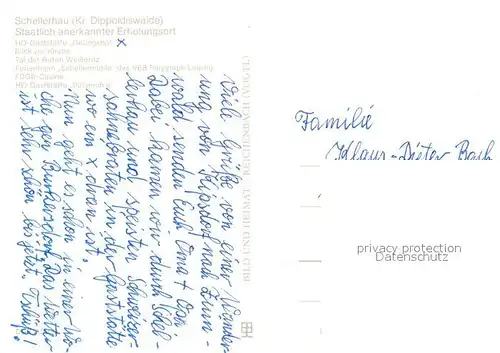 Schellerhau (Kr. Dippoldiswalde)
Staatlich anerkannter Erholungsort
HO-Gaststätte
x
Blick zur Kirche
Tal der Roten Weißeritz
Ferienheim „Schellermühle“ des VEB Polygraph Leipzig
FDGB-
HO-Gaststätte
Viele Grüße von einer Wander-
ung von Kipsdorf nach Zinn-
wald senden Euch Oma + Opa
Dabei kamen wir durch Schel-
lerhau und speisten Schweizer-
sahnebraten in der Gaststätte
wo ein x dran ist.
Nun geht es schon in einer Wo-
che gen Das Wetter
ist sehr schön bis jetzt. Tschüß!
BILD UND HEIMAT REICHENBACH (VOGTL)
Familie
Klaus-Dieter Bach
privacy protection
Datenschutz